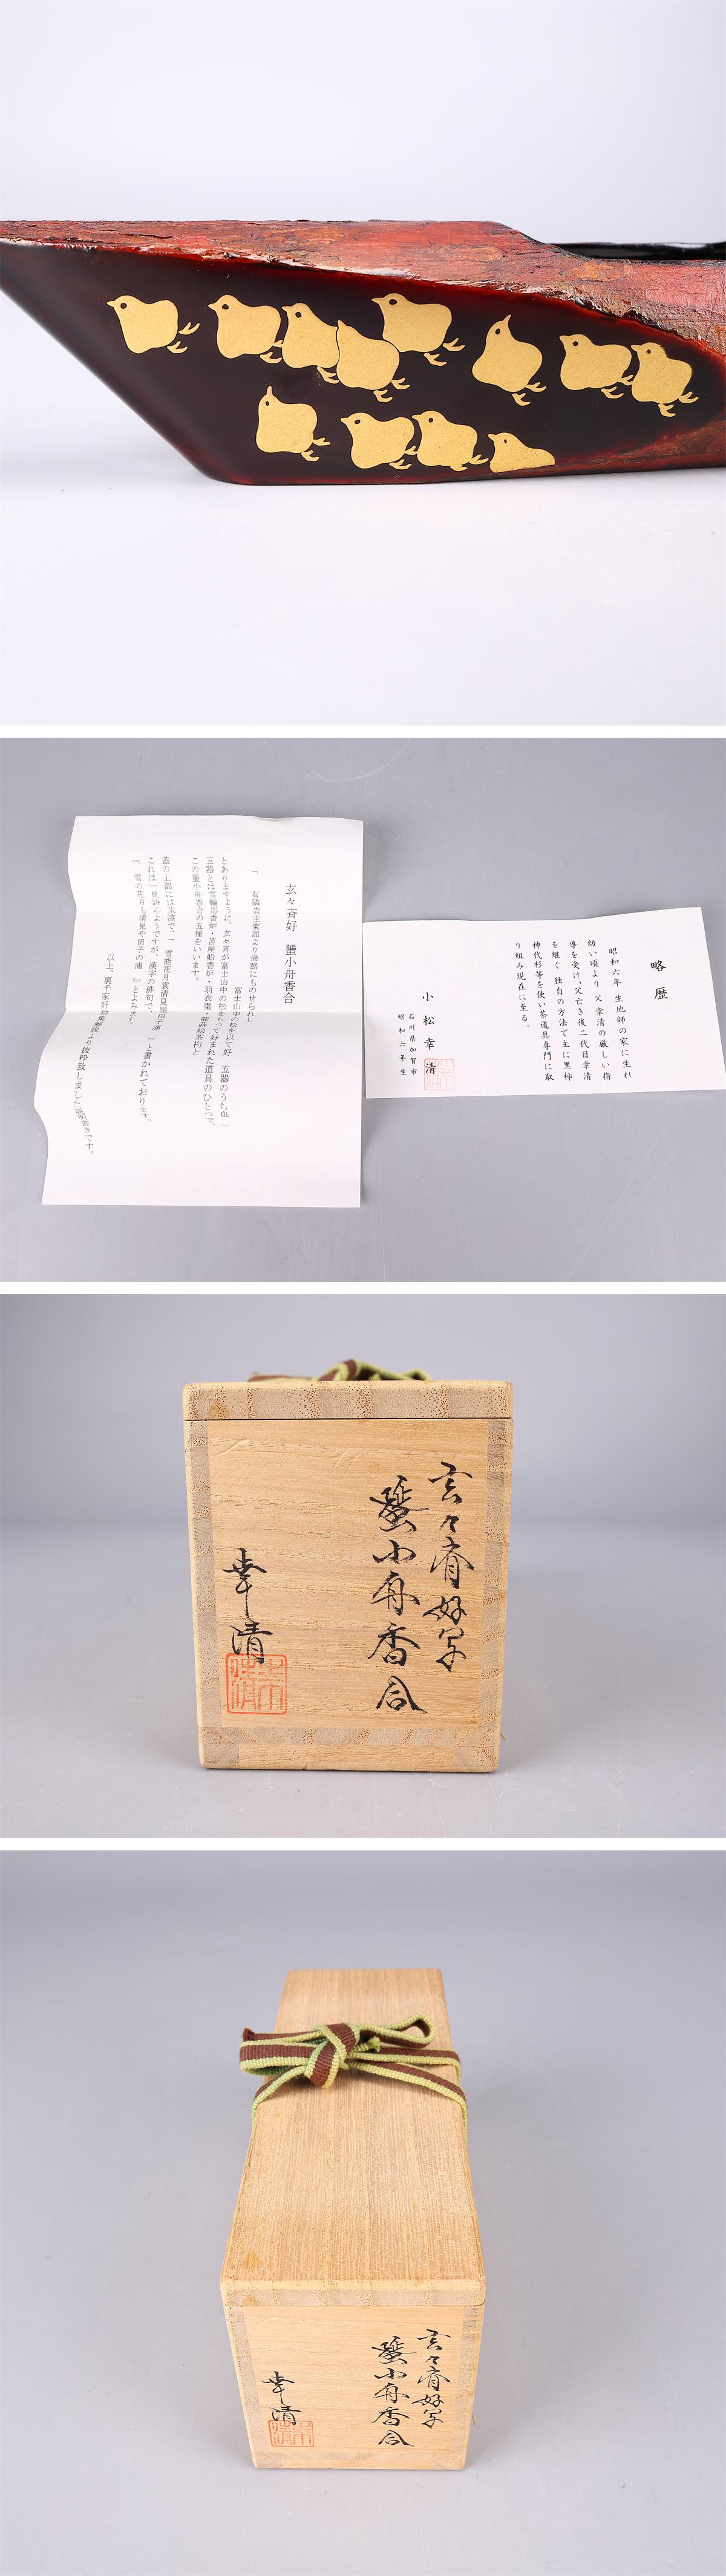 玄々斉好 蜑小舟香合
「 有隣斎主東部より帰路にものせられし
富士山中の松を以て好 五器のうち也 」
とありますように、玄々斉が富士山中の松をもって好まれた道具のひとつで、
五器とは雪輪形香炉・苫屋船香炉・羽衣棗・蒔絵茶杓と
この蜑小舟香合の五種をいいます。
蓋の上部には朱漆で、「 雪能花月裳清見 田子浦 」と書かれております。
これは一見詩のようですが、漢字の俳句で、
『 雪の花月も清見や田子の浦 』とよみます。
以上、裏千家 集解説より抜粋致しました説明書きです。
略歴
昭和六年 生地師の家に生れ
幼い頃より 父 幸清の厳しい指
導を受け、父亡き後二代目幸清
を継ぐ 独自の方法で主に黒柿
神代杉等を使い茶道具専門に取
り組み現在に至る。
小松幸清
石川県加賀市
昭和六年生
玄々斎好写
蜑小舟香合
幸清
玄々斎好写
蜑小舟香合
幸清